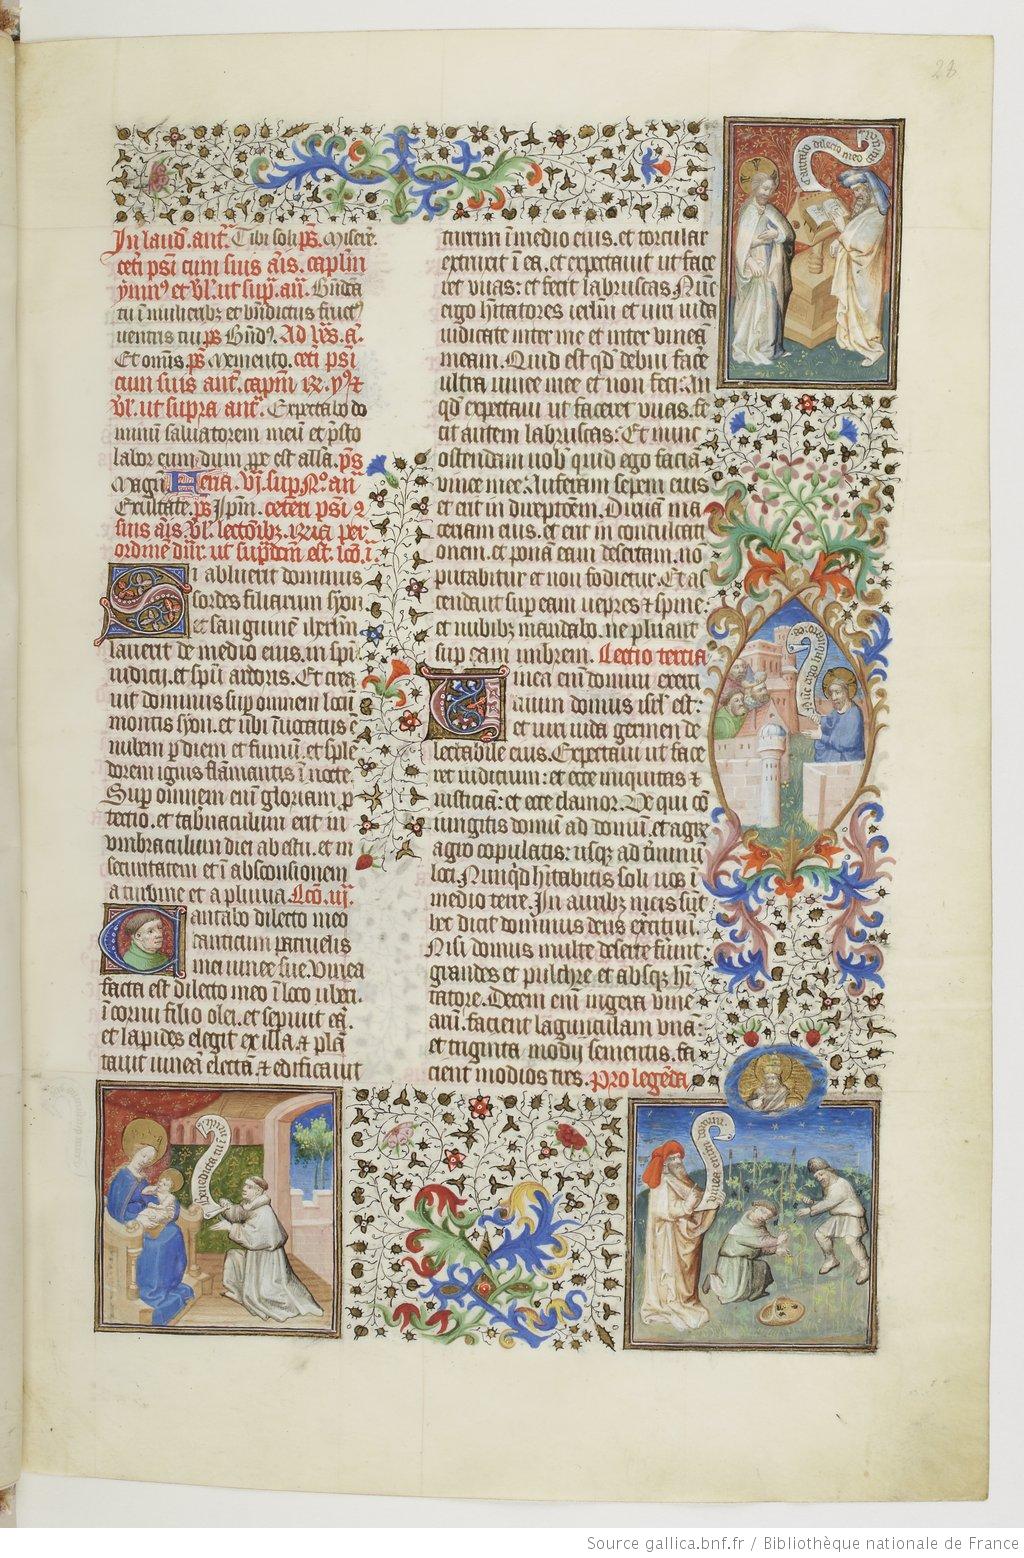 28
Cantabo dilecto meo
In laud. ant. Tibi soli ps. Misere.
ceti psi cum suis ais. caplm
ymnus et vs. ut supra. an. Bndca
tu i mulieribz et bndictus fruct9
ventris tui ps Bnds. Ad lds. a.
Et omnis ps Memento. ceti psi
cum suis ant. capm R. ys z
vs. ut supra ant. Expectabo do
minum salvatorem meu et psto
labor eum dum ppe est alla. ps
Magn Feria. vi. sup No. an
Exultate. ps Ipm. ceteri psi z
suis ais. vs. lectoibz. R ria per
ordine dnr. ut sup dcm est. lco. i.
Si abluerit dominus
sordes filiarum syon
et sanguine ihrlm
laverit de medio eius. in spu
iudicii. et spu ardoris. Et crea
vit dominus sup omnem locu
montis syon. et ubi invocatus e
nubem p diem et fumu. et sple
dorem ignis flamantis i nocte.
Sup omnem eni gloriam p
tectio. et tabnaculum erit in
umbraculum diei ab estu. et in
securitatem et i absconsionem
a turbine et a pluvia Lco. ii.
Cantabo dilecto meo
canticum patruelis
mei vinee sue. Vinea
facta est dilecto meo i loco uberi.
i cornu filio olei. et sepivit ea.
et lapides elegit ex illa. & plan
tavit vinea electa. & edificavit
turrim i medio eius. et torcular
extruxit i ea. et expectavit ut face
ret uvas: et fecit labruscas. Nuc
ergo hitatores ierlm et viri iuda
iudicate inter me et inter vinea
meam. Quid est qd debui face
ultra vinee mee et non feci: An
qd expectavi ut faceret uvas. fe
cit autem labruscas: Et nunc
ostendam vob quid ego facia
vinee mee. Auferam sepem eius
et erit in direptoem. Diruā ma
ceriam eius. et erit in conculcati
onem. et ponā eam desertam. nō
putabitur et non fodietur. Et as
cendent sup eam vepres & spine.
et nubibz mandabo. ne pluant
sup eam imbrem. Lectio tercia
Vinea eni domini exerci
tuum domus isrl est:
et viri iuda germen de
lectabile eius. Expectavi ut face
ret iudicium: et ecce iniquitas &
iusticiā: et ecce clamor. Ve qui co
iungitis domū ad domū. et agrū
agro copulatis: usqz ad tminū
loci. Nunqd hitabitis soli vos i
medio terre. In auribz meis sut
hec dicit dominus deus exercituū.
Nisi domus multe deserte fuerint
grandes et pulchre et absqz hi
tatore. Decem eni iugera vine
arū. facient lagunculam unā:
et triginta modii sementis. fa
cient modios tres. Pro legenda
Benedicta tu i
Source gallica.bnf.fr / Bibliothèque nationale de France